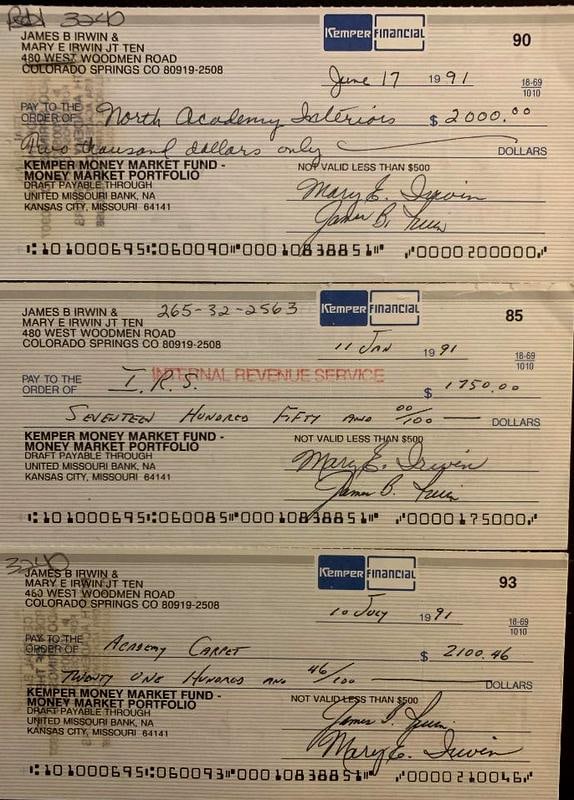 Rd 3240
JAMES B IRWIN &
MARY E IRWIN JT TEN
480 WEST WOODMEN ROAD
COLORADO SPRINGS CO 80919-2508
Kemper FINANCIAL
90
June 17 19 91
18-69
1010
PAY TO THE
ORDER OF North Academy Interiors $ 2000.00
Two thousand dollars only DOLLARS
KEMPER MONEY MARKET FUND -
MONEY MARKET PORTFOLIO
DRAFT PAYABLE THROUGH
UNITED MISSOURI BANK, NA
KANSAS CITY, MISSOURI 64141
NOT VALID LESS THAN $500
Mary E. Irwin
James B. Irwin
⑆101000695⑆060090⑈00010838851⑈ ⑇0000200000⑇
JAMES B IRWIN &
MARY E IRWIN JT TEN
480 WEST WOODMEN ROAD
COLORADO SPRINGS CO 80919-2508
265-32-2563
Kemper FINANCIAL
85
11 JAN 19 91
18-69
1010
PAY TO THE
ORDER OF I.R.S. $ 1750.00
INTERNAL REVENUE SERVICE
SEVENTEEN HUNDRED FIFTY AND 00/100 DOLLARS
KEMPER MONEY MARKET FUND -
MONEY MARKET PORTFOLIO
DRAFT PAYABLE THROUGH
UNITED MISSOURI BANK, NA
KANSAS CITY, MISSOURI 64141
NOT VALID LESS THAN $500
Mary E. Irwin
James B. Irwin
⑆101000695⑆060085⑈00010838851⑈ ⑇0000175000⑇
3240
JAMES B IRWIN &
MARY E IRWIN JT TEN
480 WEST WOODMEN ROAD
COLORADO SPRINGS CO 80919-2508
Kemper FINANCIAL
93
10 JULY 19 91
18-69
1010
PAY TO THE
ORDER OF ACADEMY CARPET $ 2100.46
TWENTY ONE HUNDRED AND 46/100 DOLLARS
KEMPER MONEY MARKET FUND -
MONEY MARKET PORTFOLIO
DRAFT PAYABLE THROUGH
UNITED MISSOURI BANK, NA
KANSAS CITY, MISSOURI 64141
NOT VALID LESS THAN $500
James B. Irwin
Mary E. Irwin
⑆101000695⑆060093⑈00010838851⑈ ⑇0000210046⑇